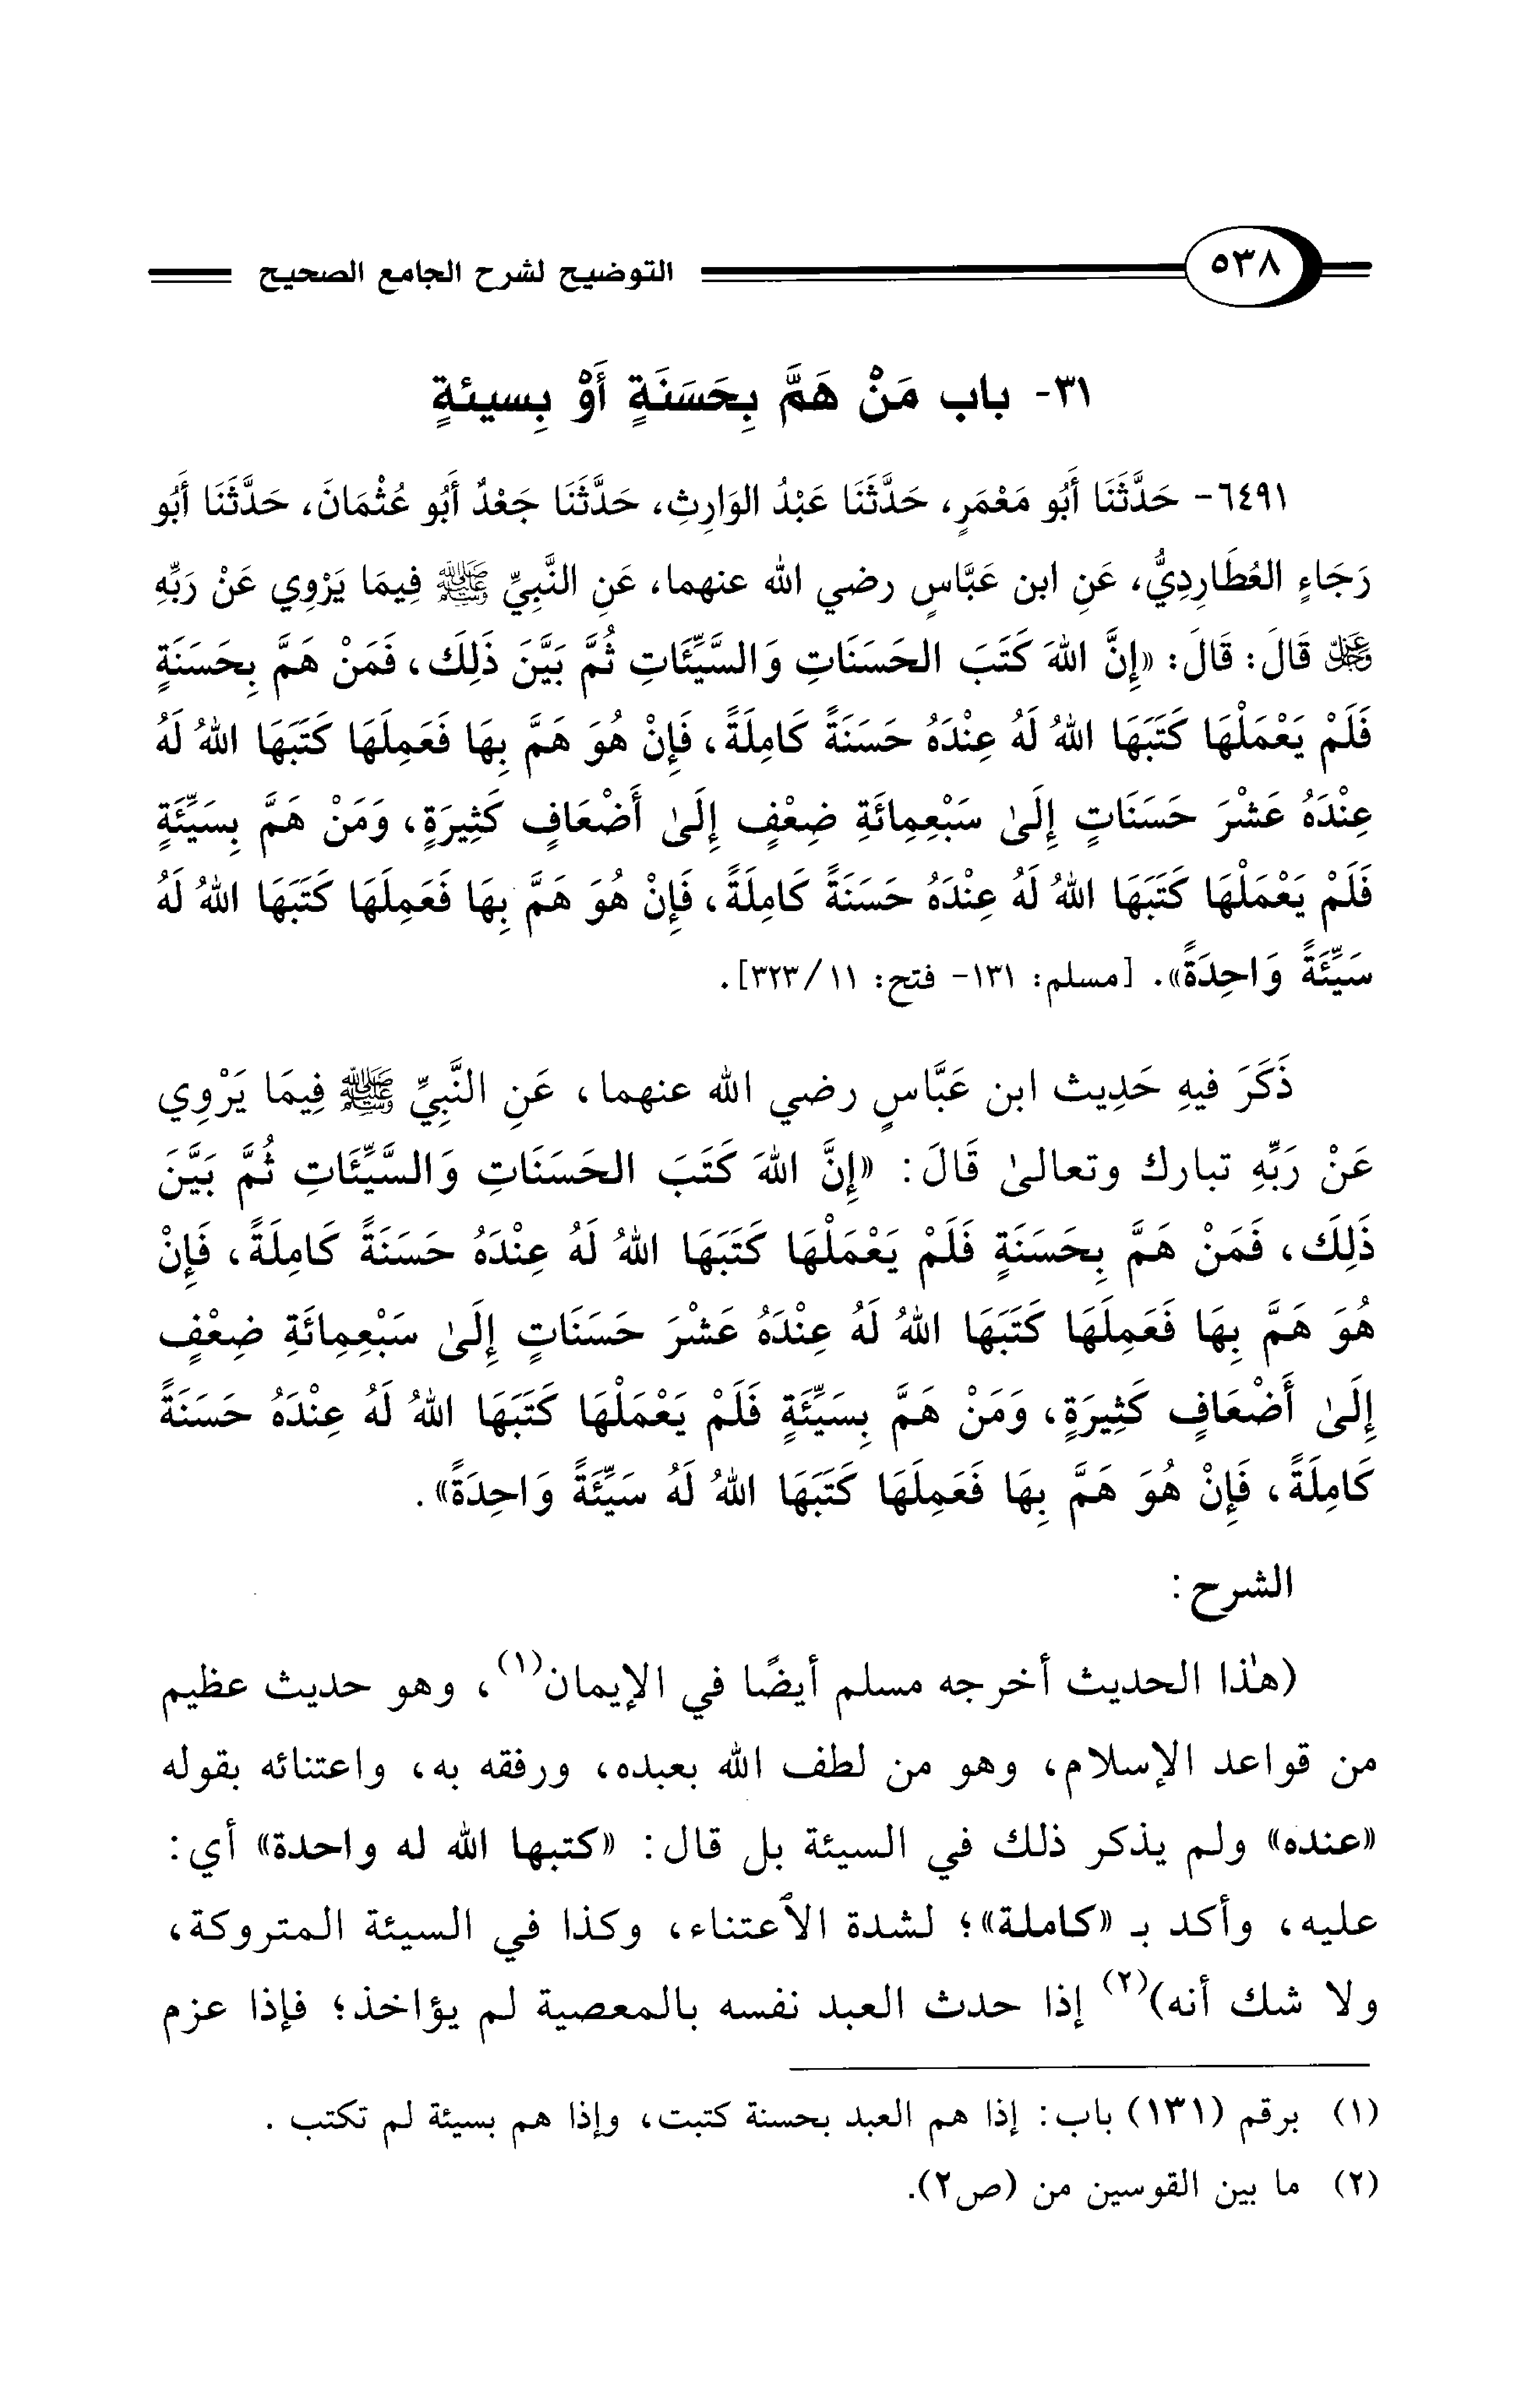 ٥٣٨ التوضيح لشرح الجامع الصحيح
٣١- باب مَنْ هَمَّ بِحَسَنَةٍ أَوْ بِسيئةٍ
٦٤٩١- حَدَّثَنَا أَبُو مَعْمَرٍ، حَدَّثَنَا عَبْدُ الوَارِثِ، حَدَّثَنَا جَعْدٌ أَبُو عُثْمَانَ، حَدَّثَنَا أَبُو
رَجَاءٍ العُطَارِدِيُّ، عَنِ ابن عَبَّاسٍ رضي الله عنهما، عَنِ النَّبِيِّ ﷺ فِيمَا يَرْوِي عَنْ رَبِّهِ
عَزَّ وَجَلَّ قَالَ: قَالَ: «إِنَّ اللهَ كَتَبَ الحَسَنَاتِ وَالسَّيِّئَاتِ ثُمَّ بَيَّنَ ذَلِكَ، فَمَنْ هَمَّ بِحَسَنَةٍ
فَلَمْ يَعْمَلْهَا كَتَبَهَا اللهُ لَهُ عِنْدَهُ حَسَنَةً كَامِلَةً، فَإِنْ هُوَ هَمَّ بِهَا فَعَمِلَهَا كَتَبَهَا اللهُ لَهُ
عِنْدَهُ عَشْرَ حَسَنَاتٍ إِلَىٰ سَبْعِمِائَةِ ضِعْفٍ إِلَىٰ أَضْعَافٍ كَثِيرَةٍ، وَمَنْ هَمَّ بِسَيِّئَةٍ
فَلَمْ يَعْمَلْهَا كَتَبَهَا اللهُ لَهُ عِنْدَهُ حَسَنَةً كَامِلَةً، فَإِنْ هُوَ هَمَّ بِهَا فَعَمِلَهَا كَتَبَهَا اللهُ لَهُ
سَيِّئَةً وَاحِدَةً». [مسلم: ١٣١- فتح: ١١/ ٣٢٣].
ذَكَرَ فيهِ حَدِيث ابن عَبَّاسٍ رضي الله عنهما، عَنِ النَّبِيِّ ﷺ فِيمَا يَرْوِي
عَنْ رَبِّهِ تبارك وتعالىٰ قَالَ: «إِنَّ اللهَ كَتَبَ الحَسَنَاتِ وَالسَّيِّئَاتِ ثُمَّ بَيَّنَ
ذَلِكَ، فَمَنْ هَمَّ بِحَسَنَةٍ فَلَمْ يَعْمَلْهَا كَتَبَهَا اللهُ لَهُ عِنْدَهُ حَسَنَةً كَامِلَةً، فَإِنْ
هُوَ هَمَّ بِهَا فَعَمِلَهَا كَتَبَهَا اللهُ لَهُ عِنْدَهُ عَشْرَ حَسَنَاتٍ إِلَىٰ سَبْعِمِائَةِ ضِعْفٍ
إِلَىٰ أَضْعَافٍ كَثِيرَةٍ، وَمَنْ هَمَّ بِسَيِّئَةٍ فَلَمْ يَعْمَلْهَا كَتَبَهَا اللهُ لَهُ عِنْدَهُ حَسَنَةً
كَامِلَةً، فَإِنْ هُوَ هَمَّ بِهَا فَعَمِلَهَا كَتَبَهَا اللهُ لَهُ سَيِّئَةً وَاحِدَةً».
الشرح:
(هٰذا الحديث أخرجه مسلم أيضًا في الإيمان(١)، وهو حديث عظيم
من قواعد الإسلام، وهو من لطف الله بعبده، ورفقه به، واعتنائه بقوله
«عنده» ولم يذكر ذلك في السيئة بل قال: «كتبها الله له واحدة» أي:
عليه، وأكد بـ «كاملة»؛ لشدة الاعتناء، وكذا في السيئة المتروكة،
ولا شك أنه)(٢) إذا حدث العبد نفسه بالمعصية لم يؤاخذ؛ فإذا عزم
(١) برقم (١٣١) باب: إذا هم العبد بحسنة كتبت، وإذا هم بسيئة لم تكتب.
(٢) ما بين القوسين من (ص٢).